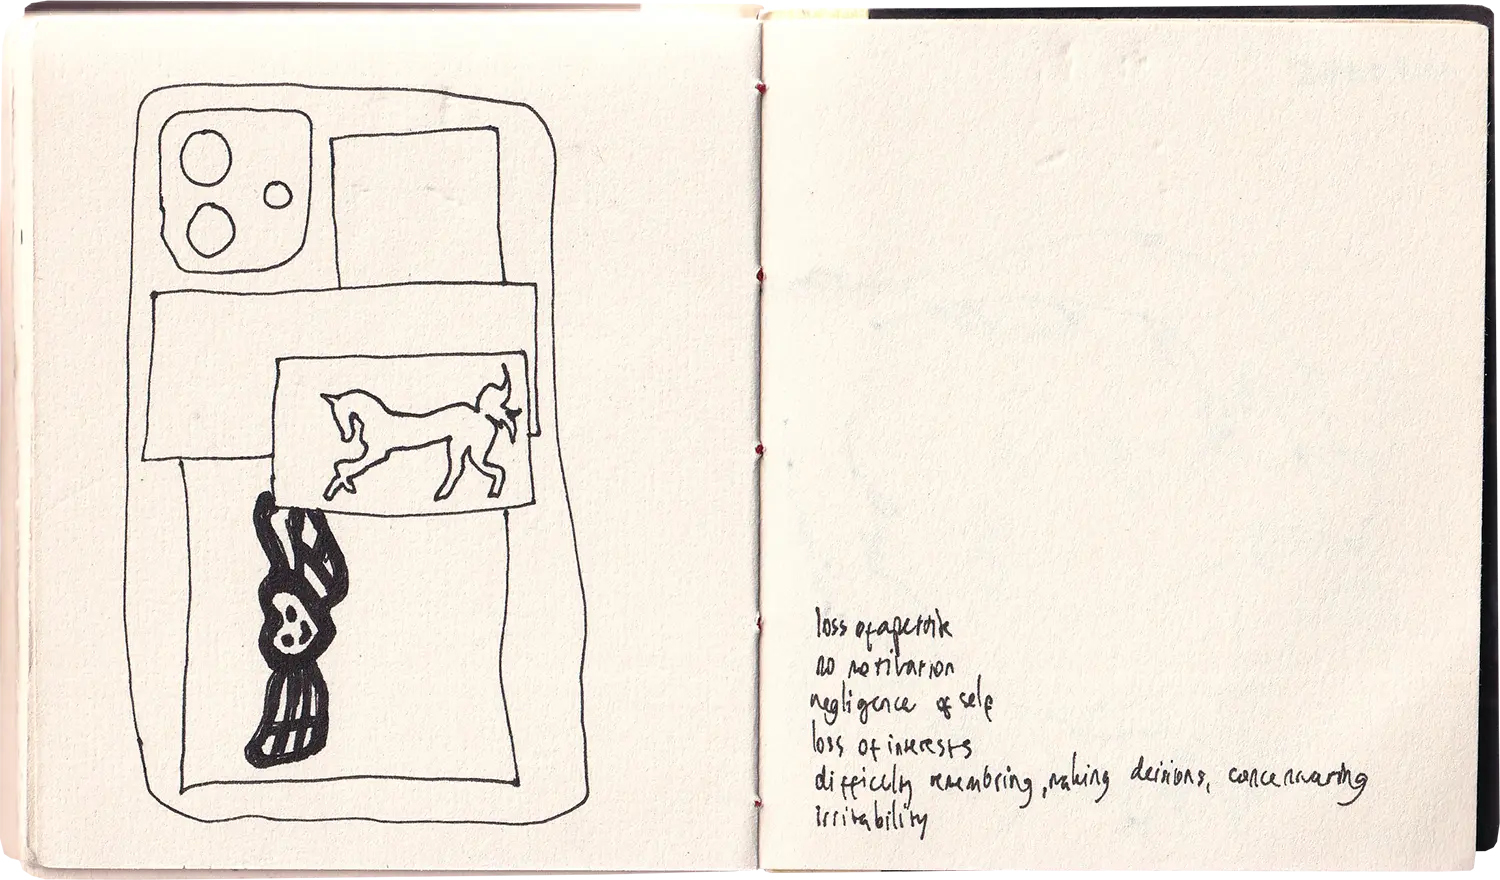 loss of apetite
no motivation
negligence of self
loss of interests
difficulty remembring, making decisions, concentrating
irritability